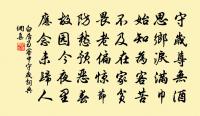 守歲尊無酒
思鄉淚滿巾
始知為客苦
不及在家貧
畏老偏驚節
防愁預惡春
故園今夜里
應念未歸人
白居易客中守歲詞典
網